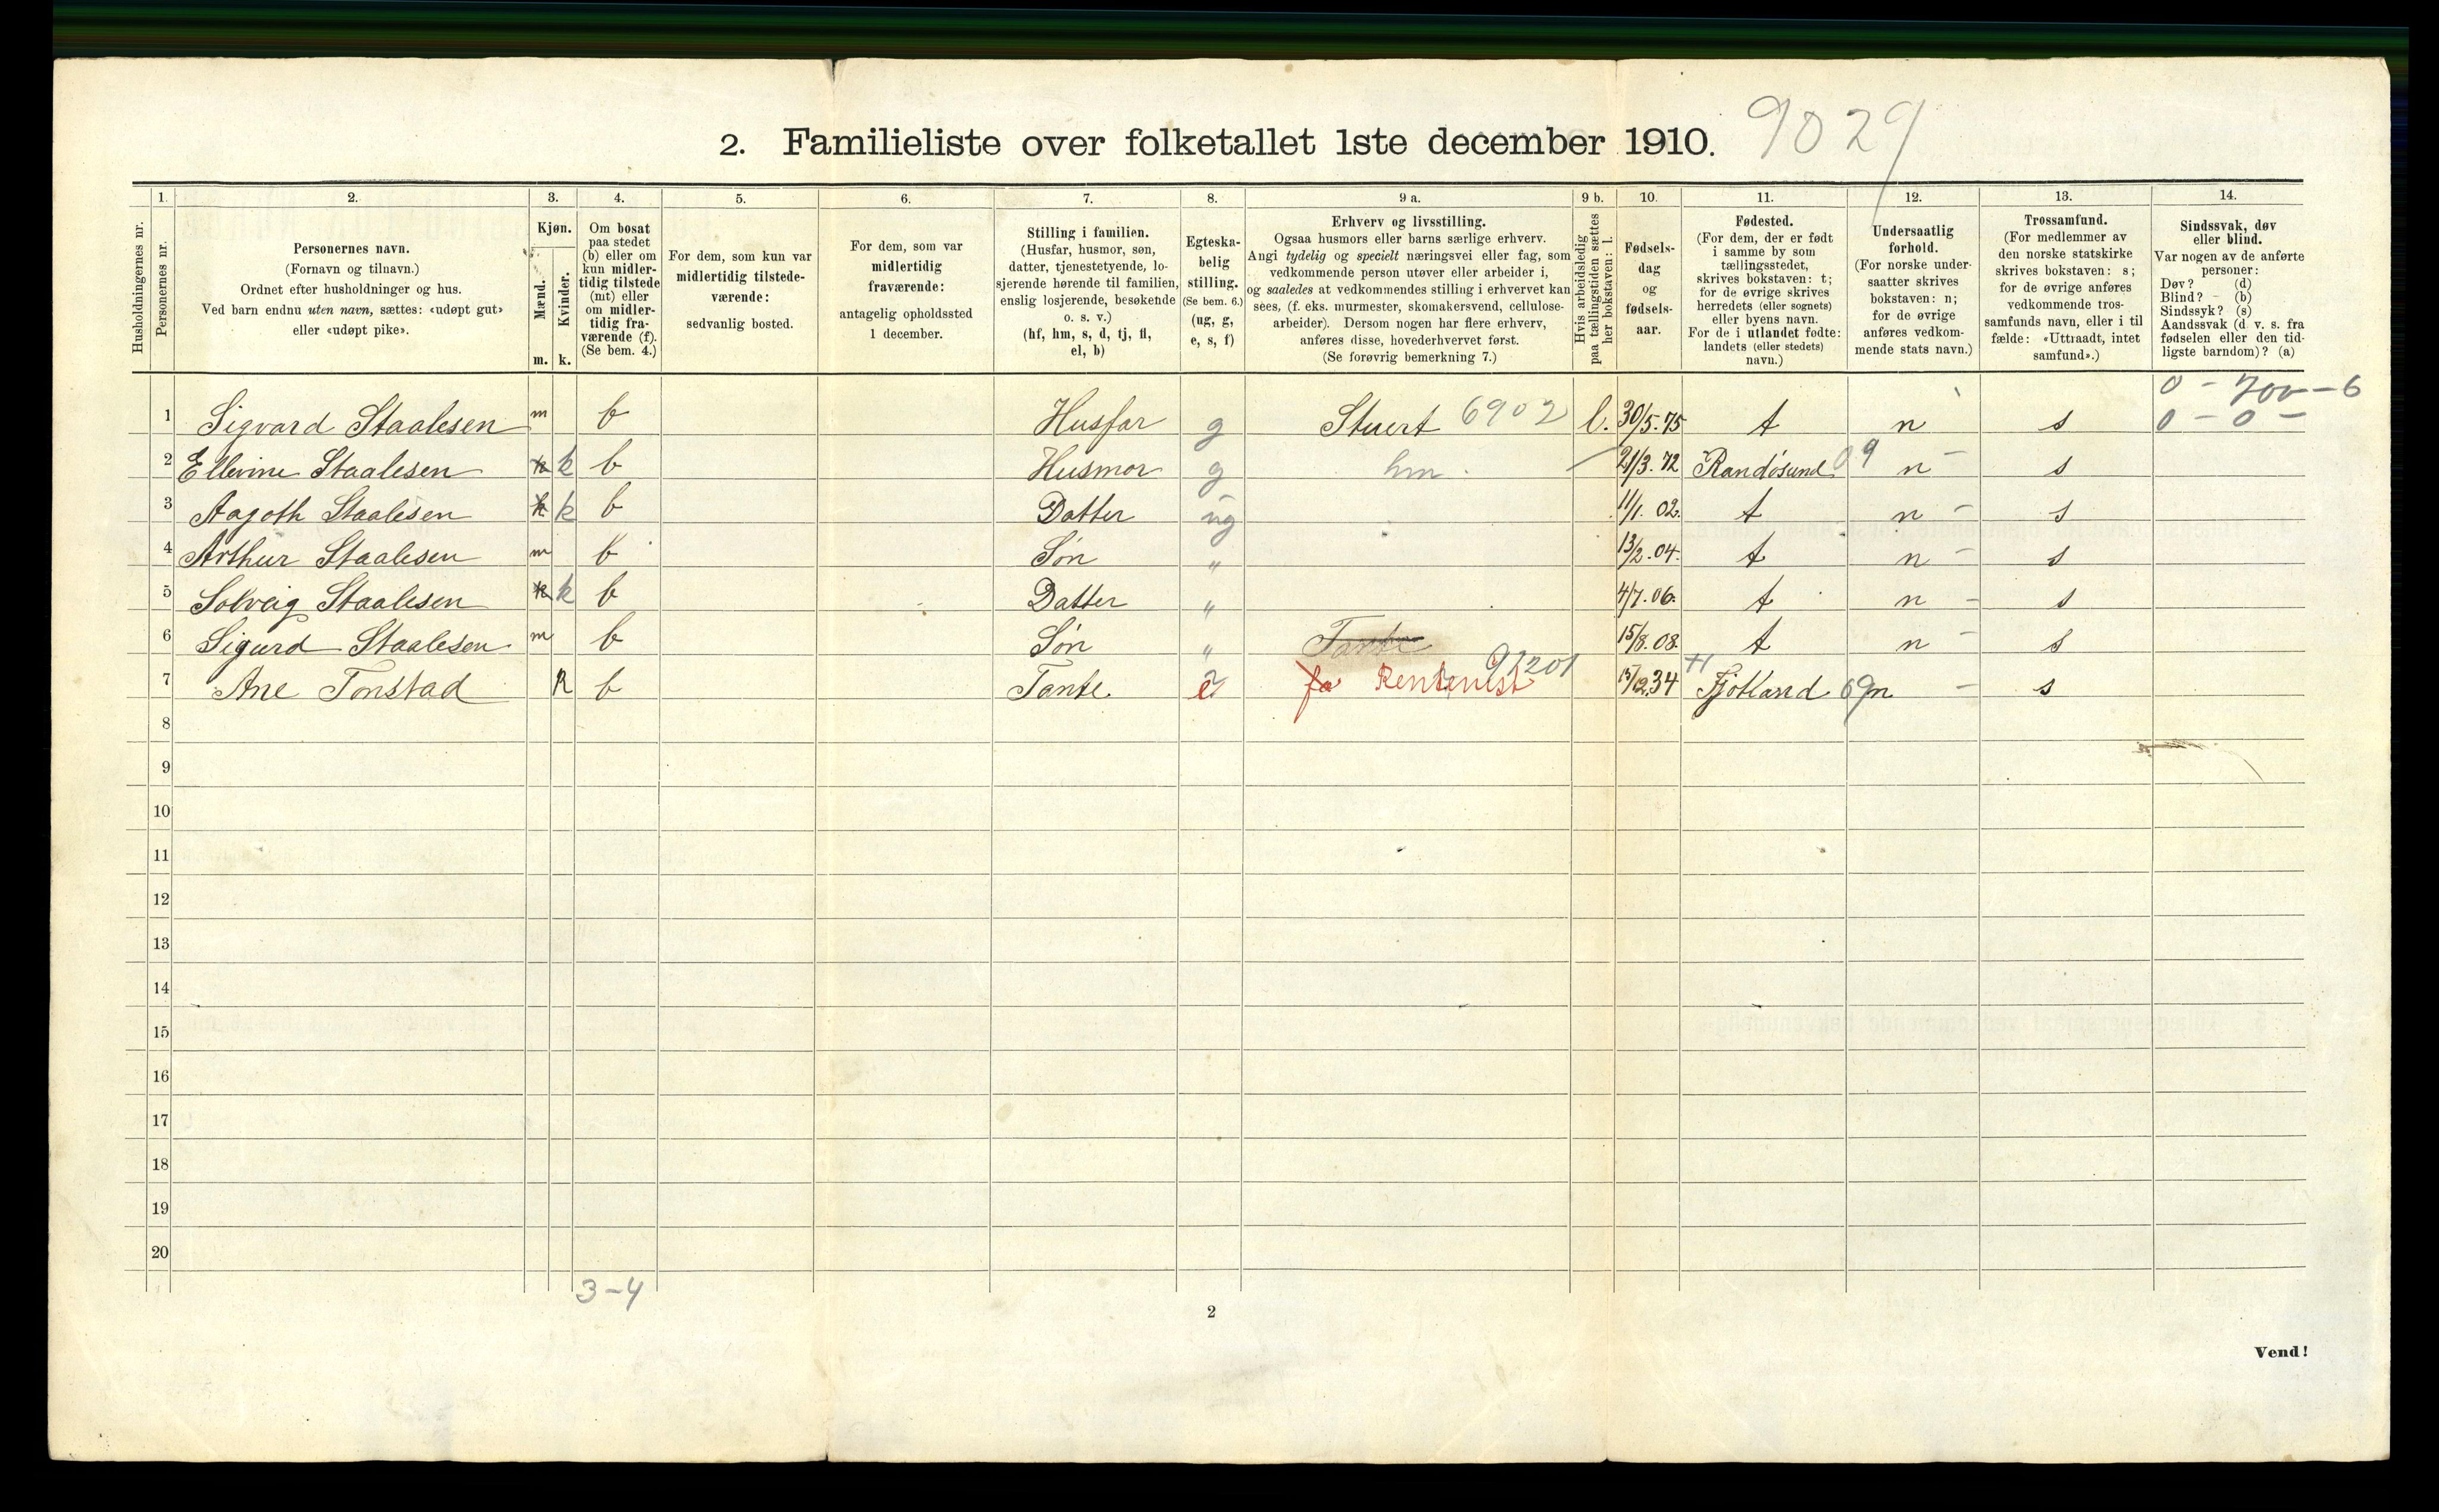 9029
2. Familieliste over folketallet 1ste december 1910.
1. 2. 3. 4. 5. 6. 7. 8. 9 a. 9 b. 10. 11. 12. 13. 14.
Husholdningernes nr.
Personernes nr.
Personernes navn.
(Fornavn og tilnavn.)
Ordnet efter husholdninger og hus.
Ved barn endnu uten navn, sættes: «udøpt gut»
eller «udøpt pike».
Kjøn.
Mænd.
Kvinder.
m. k.
Om bosat
paa stedet
(b) eller om
kun midler-
tidig tilstede
(mt) eller
om midler-
tidig fra-
værende (f).
(Se bem. 4.)
For dem, som kun var
midlertidig tilstede-
værende:
sedvanlig bosted.
For dem, som var
midlertidig
fraværende:
antagelig opholdssted
1 december.
Stilling i familien.
(Husfar, husmor, søn,
datter, tjenestetyende, lo-
sjerende hørende til familien,
enslig losjerende, besøkende
o. s. v.)
(hf, hm, s, d, tj, fl,
el, b)
Egteska-
belig
stilling.
(Se bem. 6.)
(ug, g,
e, s, f)
Erhverv og livsstilling.
Ogsaa husmors eller barns særlige erhverv.
Angi tydelig og specielt næringsvei eller fag, som
vedkommende person utøver eller arbeider i,
og saaledes at vedkommendes stilling i erhvervet kan
sees, (f. eks. murmester, skomakersvend, cellulose-
arbeider). Dersom nogen har flere erhverv,
anføres disse, hovederhvervet først.
(Se forøvrig bemerkning 7.)
Hvis arbeidsledig
paa tællingstiden sættes
her bokstaven: l.
Fødsels-
dag
og
fødsels-
aar.
Fødested.
(For dem, der er født
i samme by som
tællingsstedet,
skrives bokstaven: t;
for de øvrige skrives
herredets (eller sognets)
eller byens navn.
For de i utlandet fødte:
landets (eller stedets)
navn.)
Undersaatlig
forhold.
(For norske under-
saatter skrives
bokstaven: n;
for de øvrige
anføres vedkom-
mende stats navn.)
Trossamfund.
(For medlemmer av
den norske statskirke
skrives bokstaven: s;
for de øvrige anføres
vedkommende tros-
samfunds navn, eller i til
fælde: «Uttraadt, intet
samfund».)
Sindssvak, døv
eller blind.
Var nogen av de anførte
personer:
Døv? (d)
Blind? (b)
Sindssyk? (s)
Aandssvak (d. v. s. fra
fødselen eller den tid-
ligste barndom)? (a)
1 Sigvard Staalesen m b Husfar g Stuert 6902 l. 30/5.75 t n s 0 - 0 -
2 Ellevine Staalesen k k b Husmor g hm. 21/3.72 Randøsund 09 n - s
3 Aagoth Staalesen k k b Datter ug 11/1.02. t n - s
4 Arthur Staalesen m b Søn " 13/2.04. t n - s
5 Solveig Staalesen k k b Datter " 4/7.06. t n - s
6 Sigurd Staalesen m b Søn " Tante 15/8.08. t n - s
7 Ane Tonstad k b Tante. e fa Rentenist 97201 15/12.34 Fjotland 69 n - s
8
9
10
11
12
13
14
15
16
17
18
19
20
3-4
2
Vend!